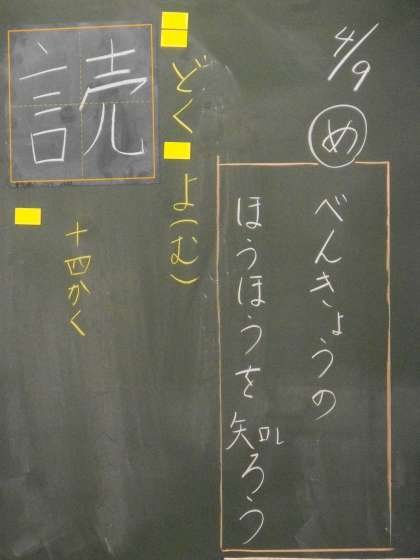 4/9
め
べんきょうの
ほうほうを知ろう
どく
よ(む)
読
十四かく